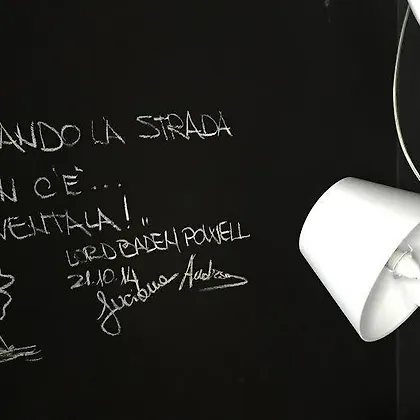 ANDO LA STRADA
N C'È...
VENTALA!"
LORD BADEN POWELL
21.10.14
Luciana Andrea